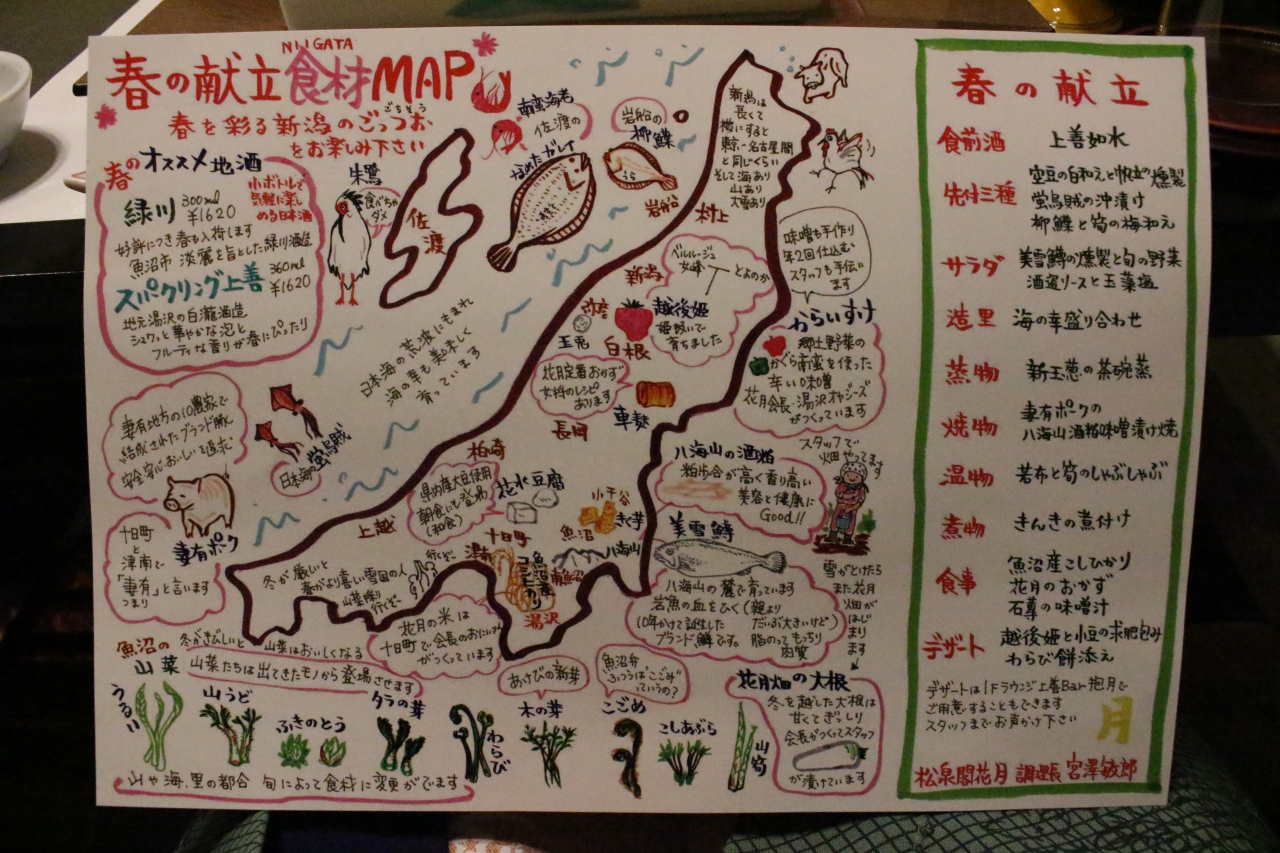 NIIGATA
春の献立食材MAP
春を彩る新潟のごっつお
ごちそう
をお楽しみ下さい
春のオススメ地酒
緑川 300ml ¥1620
小ボトルで
気軽に楽し
める日本酒
好評につき春も入荷します
魚沼市 淡麗を旨とした緑川酒造
スパークリング上善 360ml ¥1620
地元湯沢の白瀧酒造
シュワッと華やかな泡と
フルーティな香りが春にぴったり
朱鷺
食べちゃ
ダメ
佐渡
南蛮海老
佐渡の
なめたガレイ
岩船の
柳鰈
岩船
村上
新潟は
長くて
横にすると
東京-名古屋間
と同じくらい
そして海あり
山あり
大雪あり
味噌も手作り
年2回仕込む
スタッフも手伝い
ます
日本海の荒波にもまれ
海の幸も美味しく
育っています
新潟
ベルルージュ
女峰
とよのか
弥彦
玉兎
越後姫
姫扱いで
育ちました
白根
花月定番おかず
女将のレシピ
あります
車麩
長岡
からいすけ
郷土野菜の
かぐら南蛮を使った
辛い味噌
花月会長・湯沢オヤジーズ
がつくっています
妻有地方の10農家で
結成されたブランド豚
安全安心おいしいを追求
妻有ポーク
十日町
と
津南で
「妻有」と言います
つまり
日本海の蛍烏賊
柏崎
上越
県内産大豆使用
朝食にも登場
(和食)
花水豆腐
小千谷
きく芋
十日町
魚沼
八海山
津南
魚沼産
コシヒカリ
南魚沼
湯沢
八海山の酒粕
粕歩合が高く香り高い
美容と健康に
Good!!
スタッフで
畑やってます
美雪鱒
八海山の麓で育っています
岩魚の血をひく(親より
10年かけて誕生した だいぶ大きいけど)
ブランド鱒です。脂のってもっちり
肉質
雪がとけたら
また花月
畑が
はじ
まり
ます
冬が厳しいと
春がより喜しい雪国の人
山菜採り
行くぞー
行くぞー
花月の米は
十日町で会長のおにいさん
がつくっています
魚沼の
山菜
冬がきびしいと 山菜はおいしくなる
山菜たちは出てきたモノから登場させます
うるい
山うど
ふきのとう
タラの芽
わらび
あけびの新芽
木の芽
魚沼弁
ふつうは"こごみ"
っていうの?
こごめ
こしあぶら
山筍
花月畑の大根
冬を越した大根は
甘くてぎっしり
会長がつくってスタッフ
が漬けています
山や海、里の都合 旬によって食材に変更がでます
春の献立
食前酒 上善如水
先付三種 空豆の白和えと帆立の燻製
蛍烏賊の沖漬け
柳鰈と筍の梅和え
サラダ 美雪鱒の燻製と旬の野菜
酒盗ソースと玉藻塩
造里 海の幸盛り合わせ
蒸物 新玉葱の茶碗蒸
焼物 妻有ポークの
八海山酒粕味噌漬け焼
温物 若布と筍のしゃぶしゃぶ
煮物 きんきの煮付け
食事 魚沼産こしひかり
花月のおかず
石蓴の味噌汁
デザート 越後姫と小豆の求肥包み
わらび餅添え
デザートは1Fラウンジ上善Bar抱月で
ご用意することもできます
スタッフまでお声がけ下さい
月
松泉閣花月 調理長 宮澤敏郎